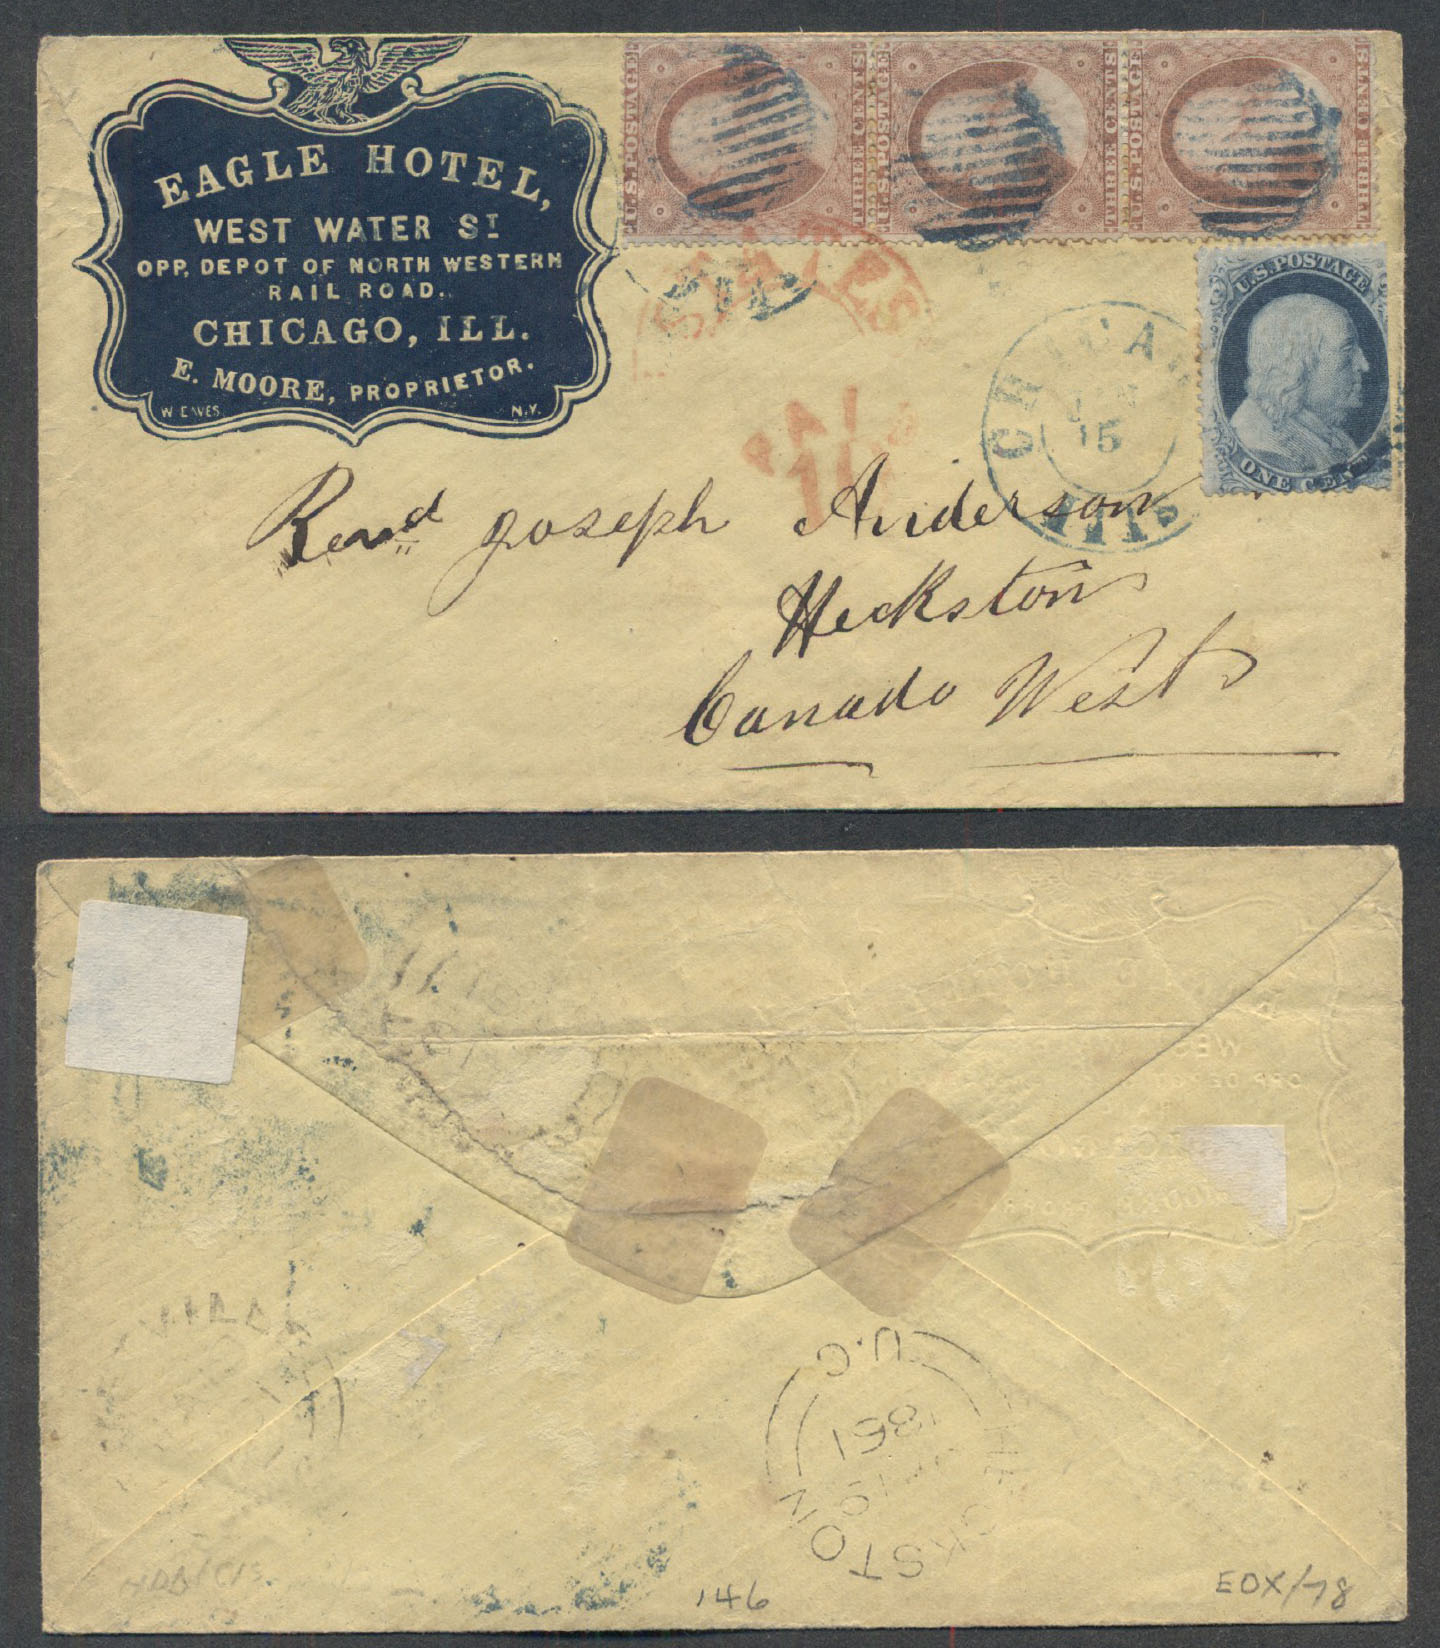 EAGLE HOTEL,
WEST WATER ST
OPP. DEPOT OF NORTH WESTERN
RAIL ROAD.
CHICAGO, ILL.
E. MOORE, PROPRIETOR.
W. EAVES. N.Y.
U.S. POSTAGE THREE CENTS
U.S. POSTAGE THREE CENTS
U.S. POSTAGE THREE CENTS
U.S. POSTAGE
ONE CENT
CHICAGO
JAN
15
ILLS
Revd Joseph Anderson
Heckston
Canada West
HECKSTON
U.C
19
1861
146
EDX/78